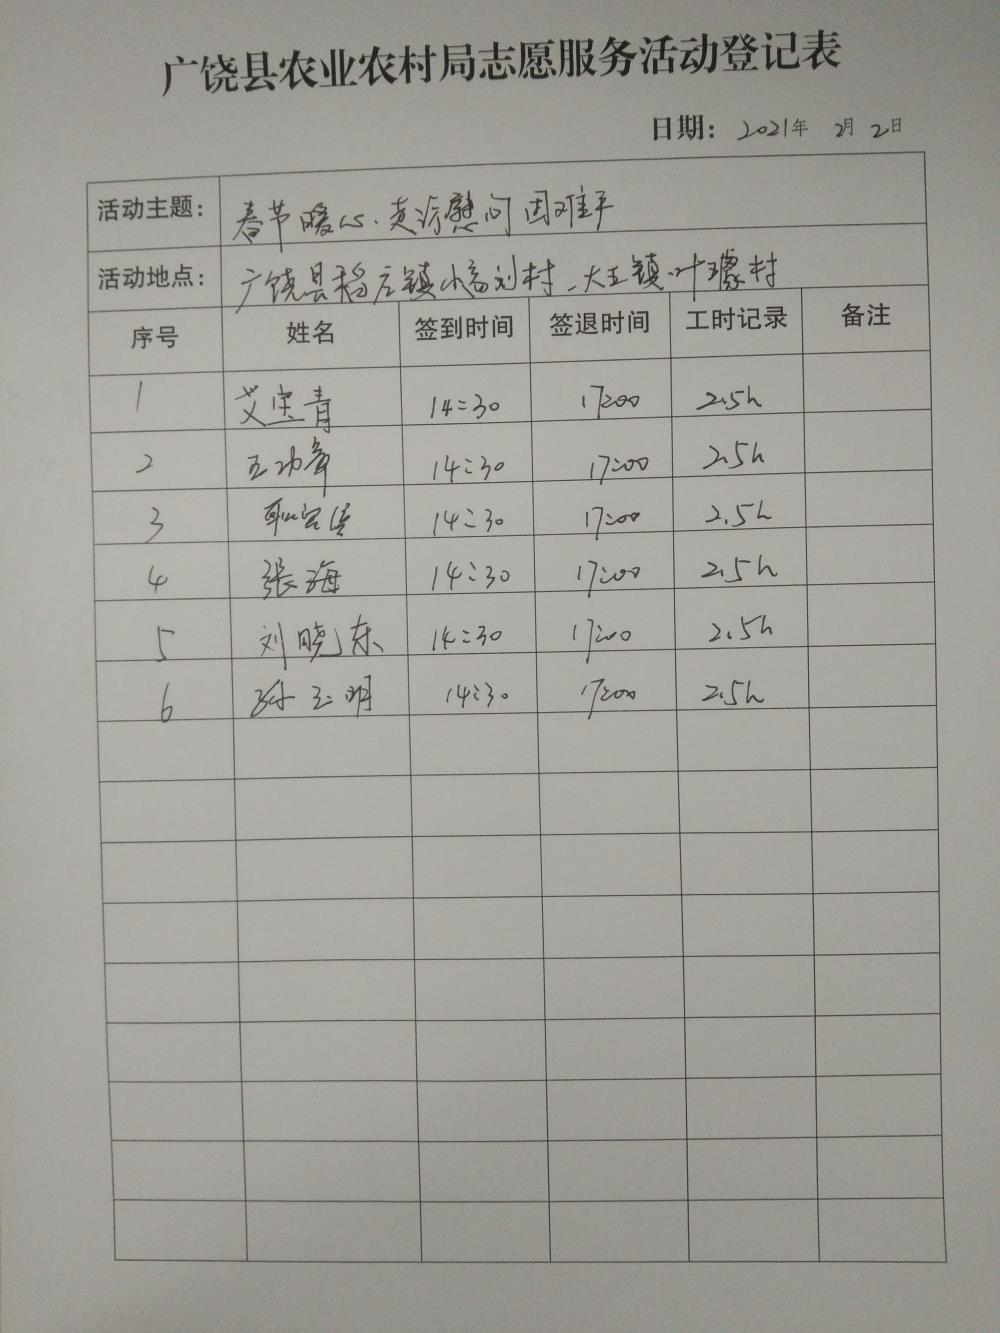 广饶县农业农村局志愿服务活动登记表
日期: 2021年 2月 2日
活动主题: 春节暖心·走访慰问困难户
活动地点: 广饶县稻庄镇小高刘村、大王镇叶璩村
序号 姓名 签到时间 签退时间 工时记录 备注
1 艾宝青 14:30 17:00 2.5h
2 14:30 17:00 2.5h
3 14:30 17:00 2.5h
4 张海 14:30 17:00 2.5h
5 刘晓东 14:30 17:00 2.5h
6 孙玉明 14:30 17:00 2.5h